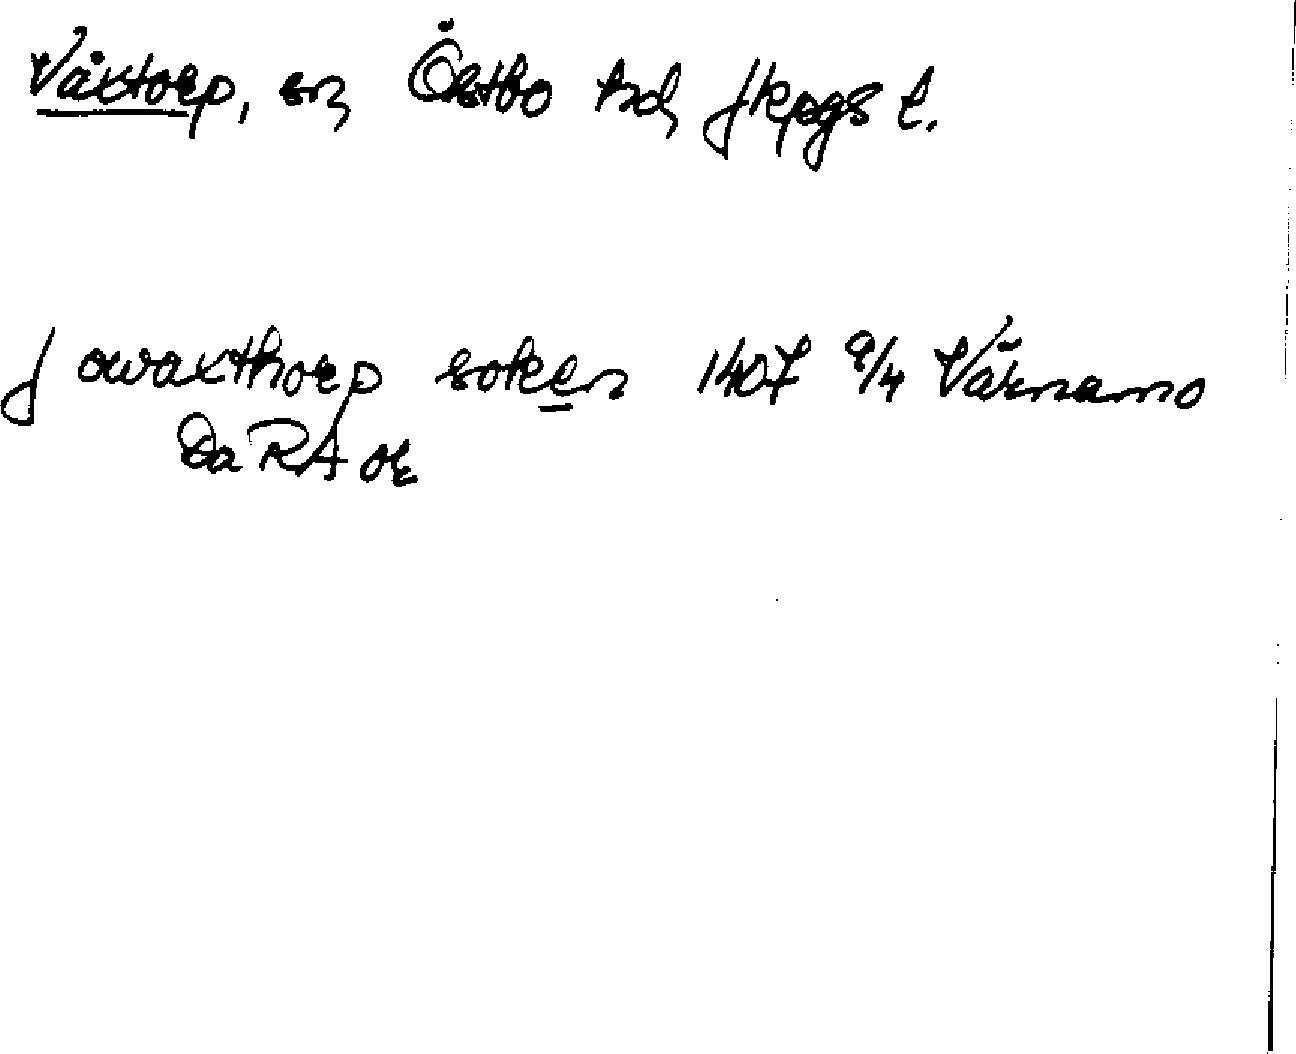 Våxtorp, sn, Östbo hd, Jkpgs l.
J owaxthorp soken 1407 9/4 Värnamo
Da RA or